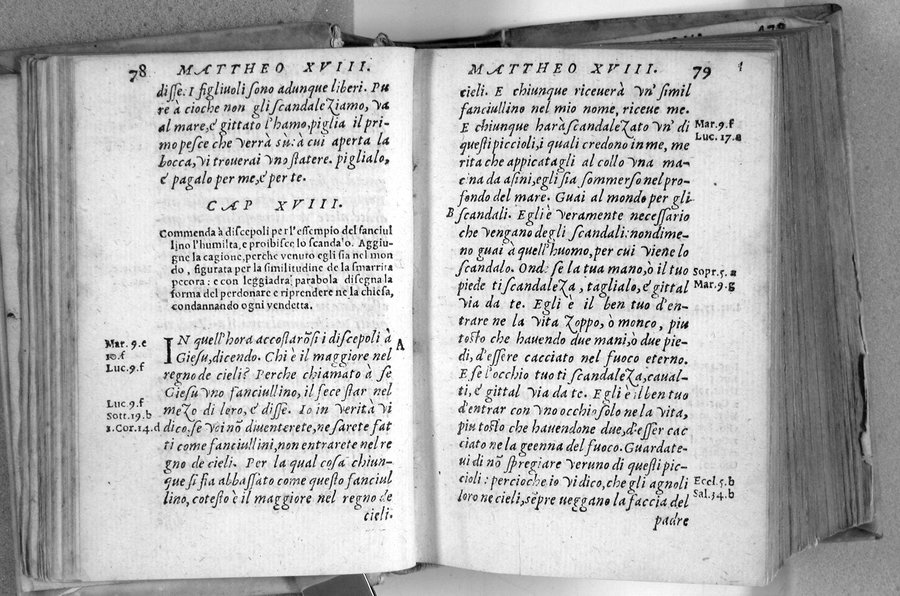 78 MATTHEO XVIII.
disse. I figliuoli sono adunque liberi. Pu
re à cioche non gli scandaleZiamo, va
al mare, e' gittato l'hamo, piglia il pri-
mo pesce che verra su: à cui aperta la
bocca, vi trouerai vno statere. piglialo,
e' pagalo per me, e' per te.
CAP XVIII.
Commenda à discepoli per l'essempio del fanciul
lino l'humilta, e proibisce lo scanda'o. Aggiu-
gne la cagione, perche venuto egli sia nel mon
do, figurata per la similitudine de la smarrita
pecora: e con leggiadra parabola disegna la
forma del perdonare e riprendere ne la chiesa,
condannando ogni vendetta.
Mar. 9.e
10.f
Luc. 9.f
Luc. 9.f
Sott. 19.b
1.Cor. 14.d
A
IN quell'hora accostarõsi i discepoli à
Giesu, dicendo. Chi è il maggiore nel
regno de cieli? Perche chiamato à se
Giesu vno fanciullino, il fece star nel
meZo di loro, e' disse. Io in verità vi
dico, se voi nõ diuenterete, ne sarete fat
ti come fanciullini, non entrarete nel re
gno de cieli. Per la qual cosa chiun-
que si fia abbassato come questo fanciul
lino, cotesto è il maggiore nel regno de
cieli.
MATTHEO XVIII. 79
cieli. E chiunque riceuerà vn' simil
fanciullino nel mio nome, riceue me.
E chiunque harà scandaleZato vn' di
questi piccioli, i quali credono in me, me
rita che appicatagli al collo vna ma-
cina da asini, egli sia sommerso nel pro-
fondo del mare. Guai al mondo per gli
B scandali. Egli è veramente necessario
che vengano degli scandali: nondime-
no guai à quell'huomo, per cui viene lo
scandalo. Onde se la tua mano, ò il tuo
piede ti scandaleZa, taglialo, e' gittal
via da te. Egli è il ben tuo d'en-
trare ne la vita Zoppo, ò monco, piu
tosto che hauendo due mani, ò due pie-
di, d'essere cacciato nel fuoco eterno.
E se l'occhio tuo ti scandaleZa, caual-
ti, e' gittal via da te. Egli è il ben tuo
d'entrar con vno occhio solo ne la vita,
piu tosto che hauendone due, d'esser cac
ciato ne la geenna del fuoco. Guardate-
ui di nõ spregiare veruno di questi pic-
cioli: percioche io vi dico, che gli agnoli
loro ne cieli, sẽpre ueggano la faccia del
padre
Mar. 9.f
Luc. 17.a
Sopr. 5.a
Mar. 9.g
Eccl. 5.b
Sal. 34.b